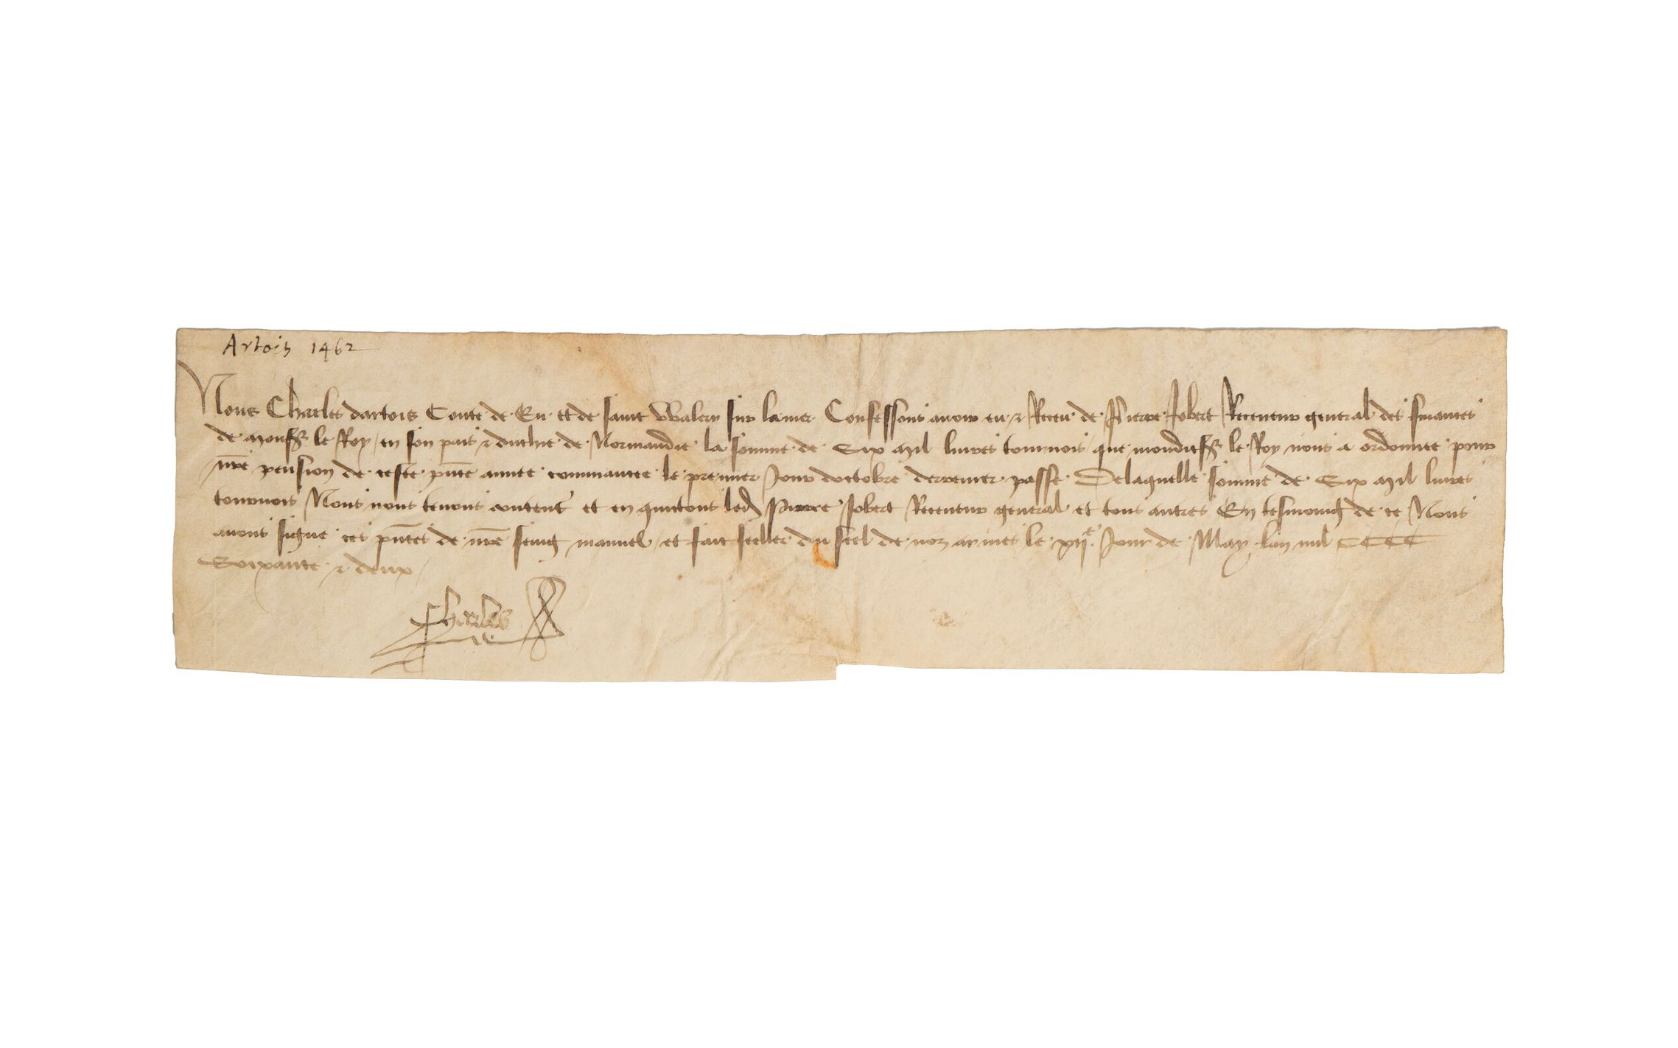 Artois 1462
Nous Charles dartois Conte de Eu et de saint Walery sur lamer Confessons avoir eu & Receu de Pierre Jobert Receveur general des finances
de monsr le Roy en son pais & duchie de Normandie la somme de Six mil livres tournois que mondit sr le Roy nous a ordonnee pour
nre pension de ceste pnte annee commancee le premier Jour doctobre derrenier passe Delaquelle somme de Six mil livres
tournois Nous nous tenons content et en quittons led Pierre Jobert Receveur general et tous autres En tesmoing de ce Nous
avons signe ces pntes de nre seing manuel et fait seeller du seel de noz armes le xije Jour de May lan mil CCCC
Soixante & deux
Charles